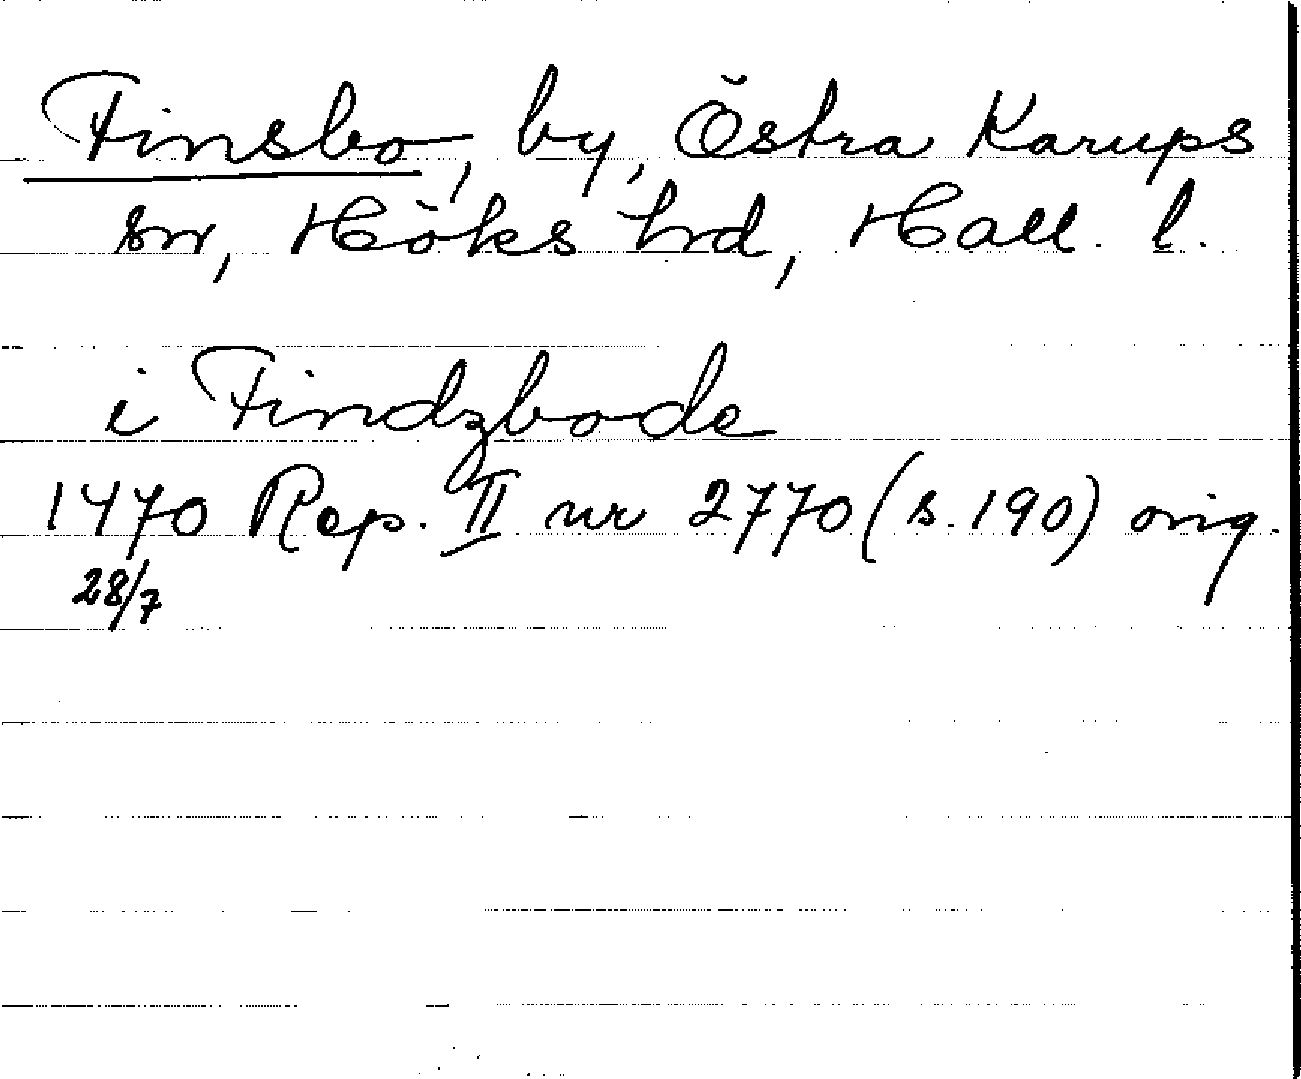 Finsbo, by, Östra Karups
sn, Höks hrd, Hall. l.
i Findzbode
1470 Rep. II nr 2770 (s. 190) orig.
28/7